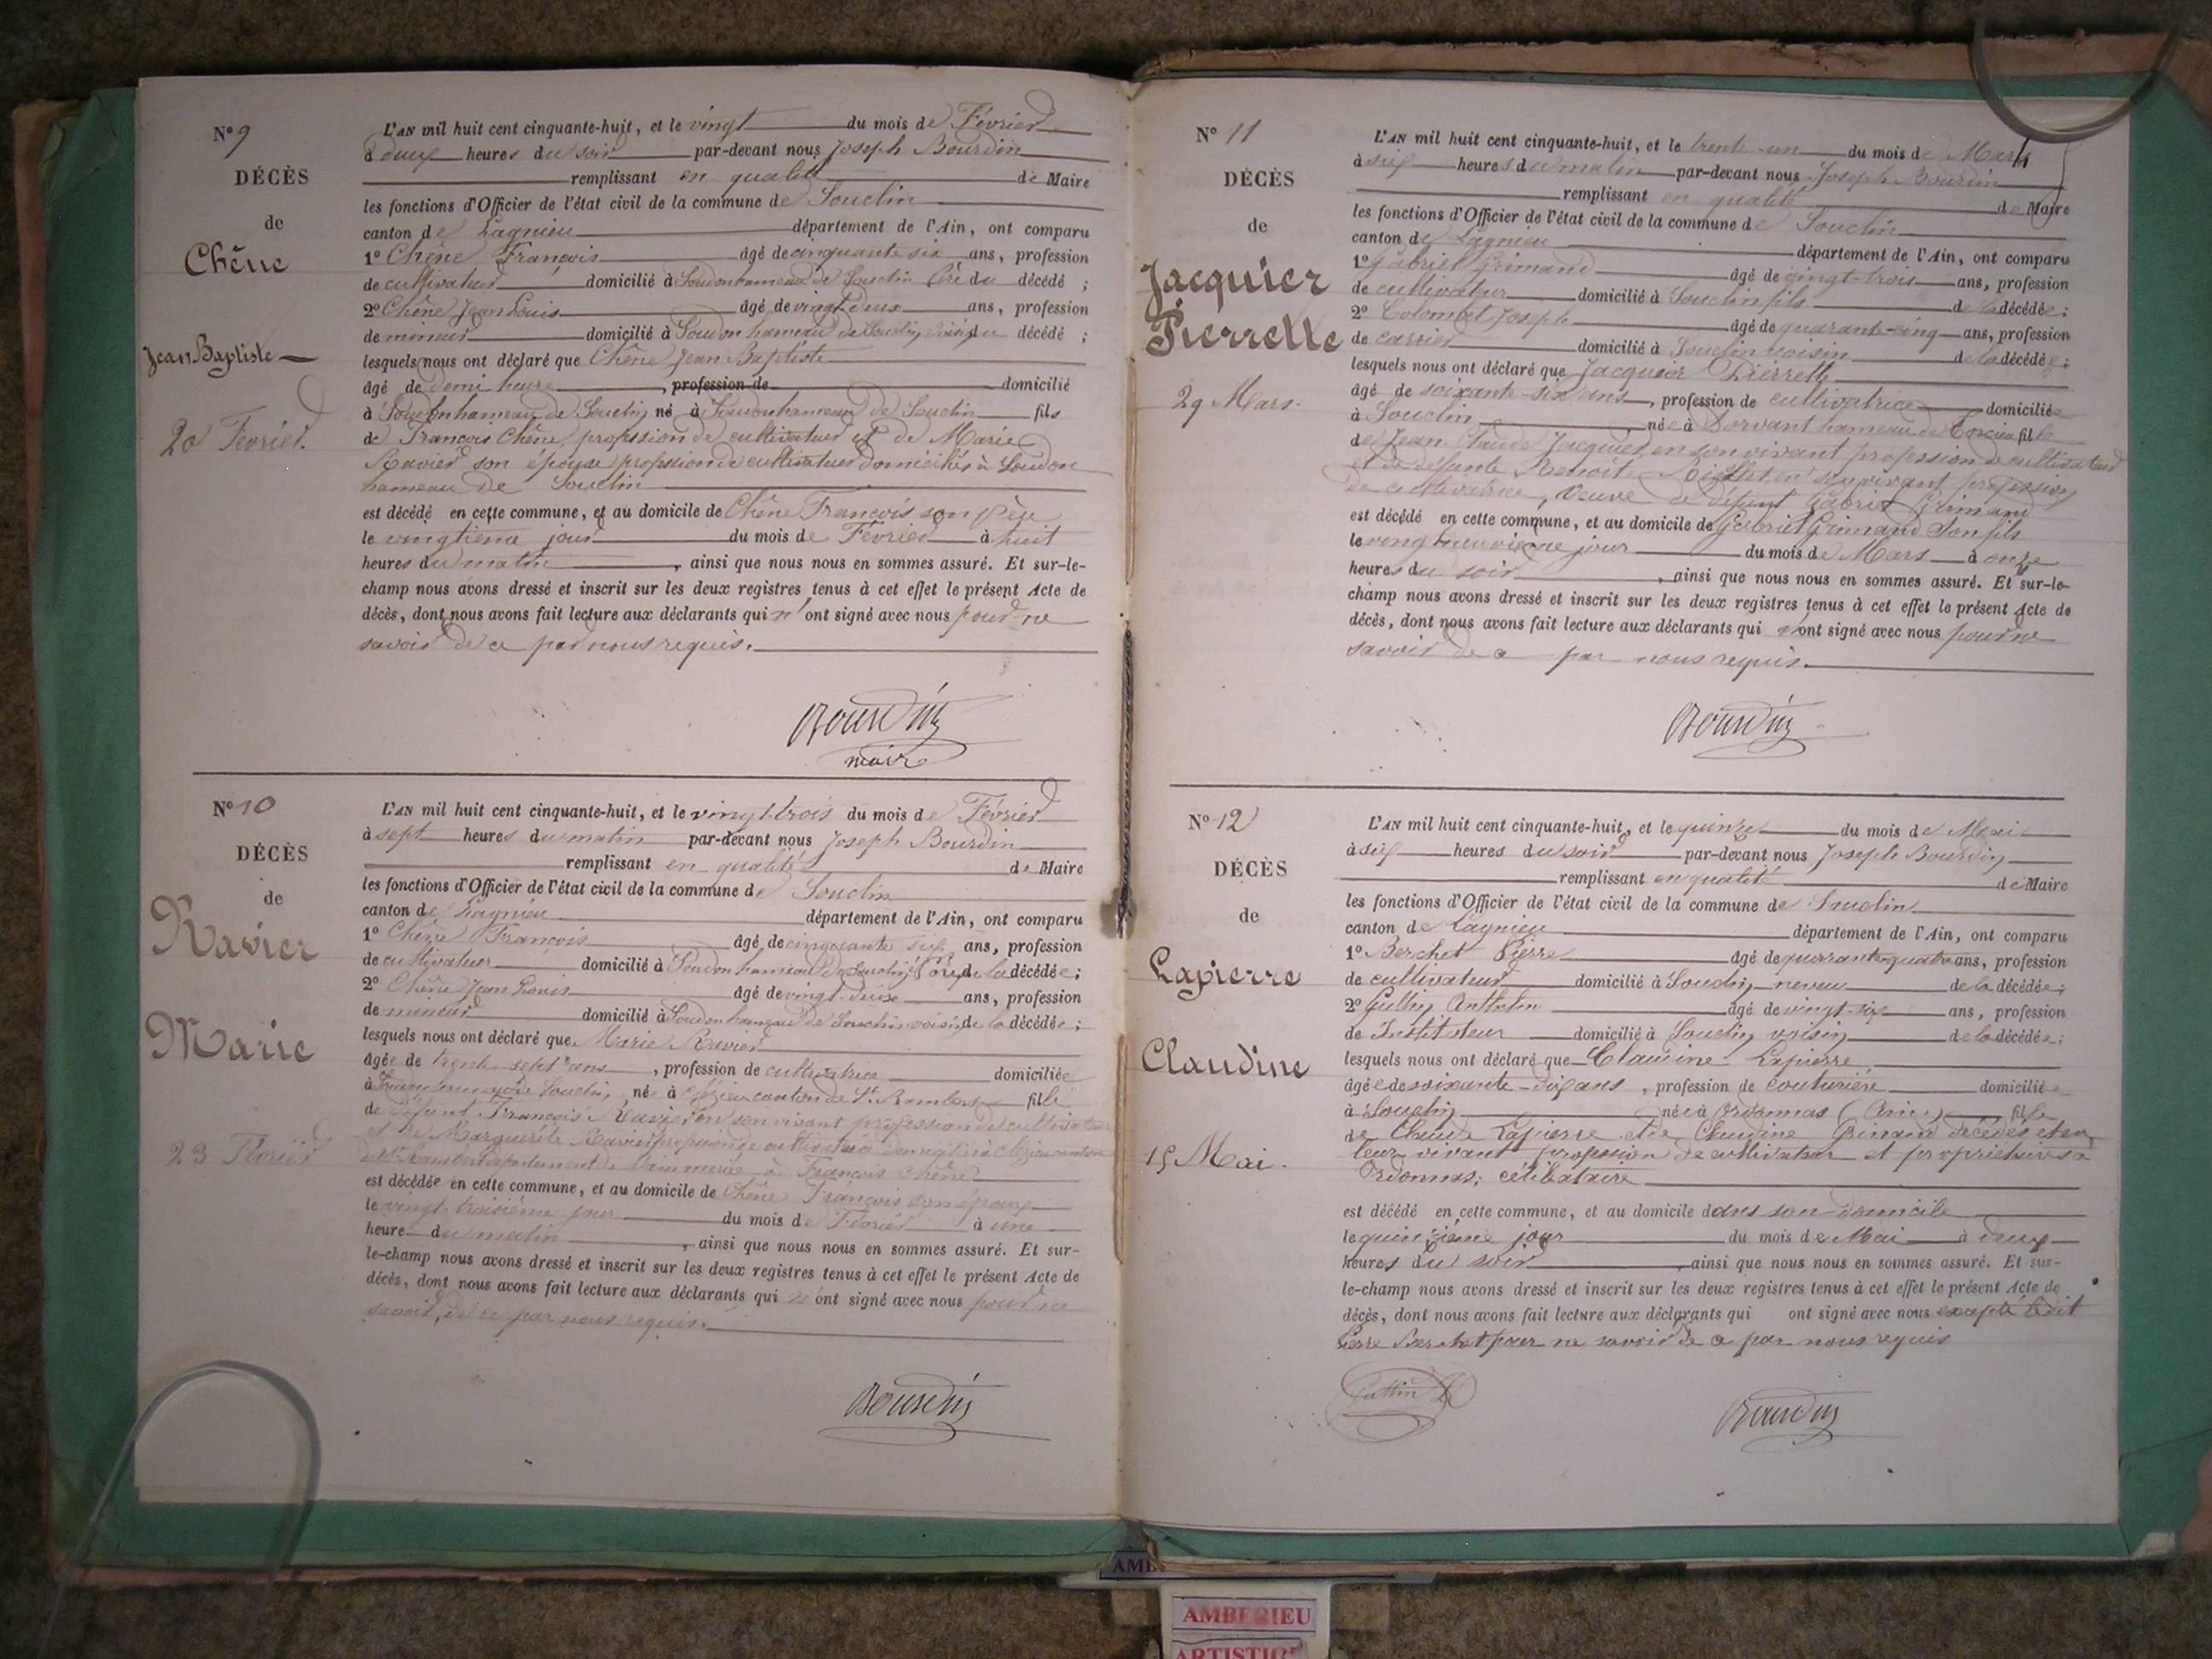 N° 9
DÉCÈS
de
Chêne
Jean Baptiste
20 Février
L'AN mil huit cent cinquante-huit, et le vingt du mois de Février
à deux heures du soir par-devant nous Joseph Bourdin
remplissant en qualité de Maire
les fonctions d'Officier de l'état civil de la commune de Souclin
canton de Lagnieu département de l'Ain, ont comparu
1° Chêne François âgé de cinquante six ans, profession
de cultivateur domicilié à Soudon hameau de Souclin Père du décédé ;
2° Chêne Jean Louis âgé de vingt deux ans, profession
de mineur domicilié à Soudon hameau de Souclin, voisin du décédé ;
lesquels nous ont déclaré que Chêne Jean Baptiste
âgé de demi heure, profession de domicilié
à Soudon hameau de Souclin, né à Soudon hameau de Souclin fils
de François Chêne, profession de cultivateur et de Marie
Ravier son épouse profession de cultivateur domiciliés à Soudon
hameau de Souclin
est décédé en cette commune, et au domicile de Chêne François son père
le vingtième jour du mois de Février à huit
heures du matin, ainsi que nous nous en sommes assuré. Et sur-le-
champ nous avons dressé et inscrit sur les deux registres tenus à cet effet le présent Acte de
décès, dont nous avons fait lecture aux déclarants qui n'ont signé avec nous pour ne
savoir de ce par nous requis.
Bourdin
maire
N° 10
DÉCÈS
de
Ravier
Marie
23 Février
L'AN mil huit cent cinquante-huit, et le vingt-trois du mois de Février
à sept heures du matin par-devant nous Joseph Bourdin
remplissant en qualité de Maire
les fonctions d'Officier de l'état civil de la commune de Souclin
canton de Lagnieu département de l'Ain, ont comparu
1° Chêne François âgé de cinquante six ans, profession
de cultivateur domicilié à Soudon hameau de Souclin, de la décédée ;
2° Chêne Jean Louis âgé de vingt-deux ans, profession
de mineur domicilié à Soudon hameau de Souclin voisin de la décédée ;
lesquels nous ont déclaré que Marie Ravier
âgée de trente-sept ans, profession de cultivatrice domiciliée
à Souclin, née à canton de St. Rambert fille
de défunt François Ravier en son vivant profession de cultivateur
et de Marguerite Ravier profession de cultivatrice
mariée à François Chêne
est décédée en cette commune, et au domicile de Chêne François son époux
le vingt-troisième jour du mois de Février à une
heure du matin, ainsi que nous nous en sommes assuré. Et sur-
le-champ nous avons dressé et inscrit sur les deux registres tenus à cet effet le présent Acte de
décès, dont nous avons fait lecture aux déclarants qui n'ont signé avec nous pour ne
savoir, de ce par nous requis.
Bourdin
N° 11
DÉCÈS
de
Jacquier
Pierrette
29 Mars.
L'AN mil huit cent cinquante-huit, et le trente-un du mois de Mars
à six heures du matin par-devant nous Joseph Bourdin
remplissant en qualité de Maire
les fonctions d'Officier de l'état civil de la commune de Souclin
canton de Lagnieu département de l'Ain, ont comparu
1° Gabriel Grimand âgé de vingt-trois ans, profession
de cultivateur domicilié à Souclin fils de la décédée ;
2° Colombet Joseph âgé de quarante-cinq ans, profession
de carrier domicilié à Souclin voisin de la décédée ;
lesquels nous ont déclaré que Jacquier Pierrette
âgé de soixante-six ans, profession de cultivatrice domiciliée
à Souclin, née à Dorvant hameau de Torcieu fille
de Jean Claude Jacquier en son vivant profession de cultivateur
et de défunte Benoite en son vivant profession
de cultivatrice, Veuve de défunt Gabriel Grimand
est décédé en cette commune, et au domicile de Gabriel Grimand Son fils
le vingt neuvième jour du mois de Mars à onze
heures du soir, ainsi que nous nous en sommes assuré. Et sur-le-
champ nous avons dressé et inscrit sur les deux registres tenus à cet effet le présent Acte de
décès, dont nous avons fait lecture aux déclarants qui n'ont signé avec nous pour ne
savoir de ce par nous requis.
Bourdin
N° 12
DÉCÈS
de
Lapierre
Claudine
15 Mai.
L'AN mil huit cent cinquante-huit, et le quinze du mois de Mai
à six heures du soir par-devant nous Joseph Bourdin
remplissant en qualité de Maire
les fonctions d'Officier de l'état civil de la commune de Souclin
canton de Lagnieu département de l'Ain, ont comparu
1° Berchet Pierre âgé de quarante-quatre ans, profession
de cultivateur domicilié à Souclin neveu de la décédée ;
2° Anthelm âgé de vingt-six ans, profession
de Instituteur domicilié à Souclin voisin de la décédée ;
lesquels nous ont déclaré que Claudine Lapierre
âgée de soixante-dix ans, profession de couturière domiciliée
à Souclin née à Ordonnas (Ain) fille
de Claude Lapierre et de Claudine décédés et en
leur vivant profession de cultivateur et propriétaires à
Ordonnas; célibataire
est décédé en cette commune, et au domicile dans son domicile
le quinzième jour du mois de Mai à deux
heures du soir, ainsi que nous nous en sommes assuré. Et sur-
le-champ nous avons dressé et inscrit sur les deux registres tenus à cet effet le présent Acte de
décès, dont nous avons fait lecture aux déclarants qui ont signé avec nous excepté ledit
Pierre Berchet pour ne savoir de ce par nous requis
Bourdin
AMBERIEU